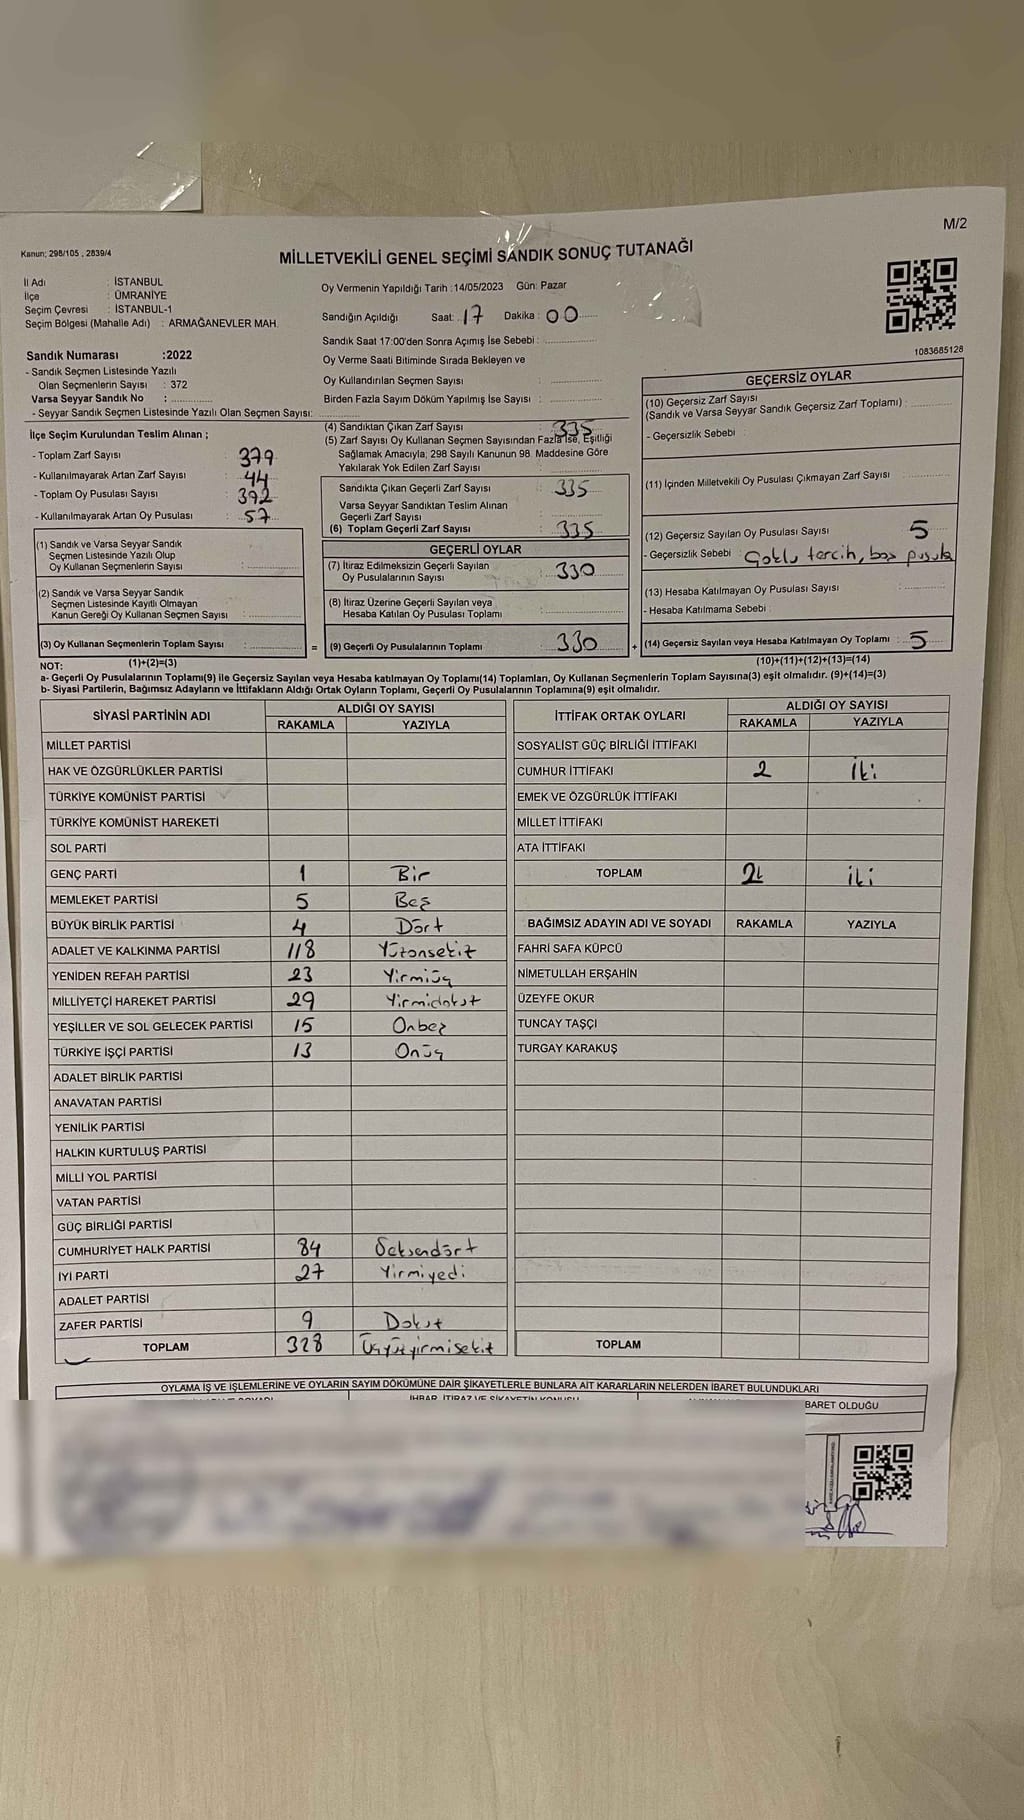 M/2
Kanun; 298/105 , 2839/4
MİLLETVEKİLİ GENEL SEÇİMİ SANDIK SONUÇ TUTANAĞI
İl Adı : İSTANBUL
İlçe : ÜMRANİYE
Seçim Çevresi : İSTANBUL-1
Seçim Bölgesi (Mahalle Adı) : ARMAĞANEVLER MAH.
Oy Vermenin Yapıldığı Tarih :14/05/2023 Gün: Pazar
Sandığın Açıldığı Saat: 17 Dakika : 00
Sandık Saat 17:00'den Sonra Açımış İse Sebebi :
Oy Verme Saati Bitiminde Sırada Bekleyen ve
Oy Kullandırılan Seçmen Sayısı :
Birden Fazla Sayım Döküm Yapılmış İse Sayısı :
1083685128
Sandık Numarası :2022
- Sandık Seçmen Listesinde Yazılı
Olan Seçmenlerin Sayısı : 372
Varsa Seyyar Sandık No :
- Seyyar Sandık Seçmen Listesinde Yazılı Olan Seçmen Sayısı:
İlçe Seçim Kurulundan Teslim Alınan ;
- Toplam Zarf Sayısı : 379
- Kullanılmayarak Artan Zarf Sayısı : 44
- Toplam Oy Pusulası Sayısı : 392
- Kullanılmayarak Artan Oy Pusulası : 57
(1) Sandık ve Varsa Seyyar Sandık
Seçmen Listesinde Yazılı Olup
Oy Kullanan Seçmenlerin Sayısı :
(2) Sandık ve Varsa Seyyar Sandık
Seçmen Listesinde Kayıtlı Olmayan
Kanun Gereği Oy Kullanan Seçmen Sayısı :
(3) Oy Kullanan Seçmenlerin Toplam Sayısı :
(1)+(2)=(3)
(4) Sandıktan Çıkan Zarf Sayısı : 335
(5) Zarf Sayısı Oy Kullanan Seçmen Sayısından Fazla İse, Eşitliği
Sağlamak Amacıyla; 298 Sayılı Kanunun 98. Maddesine Göre
Yakılarak Yok Edilen Zarf Sayısı :
Sandıkta Çıkan Geçerli Zarf Sayısı : 335
Varsa Seyyar Sandıktan Teslim Alınan
Geçerli Zarf Sayısı :
(6) Toplam Geçerli Zarf Sayısı : 335
GEÇERLİ OYLAR
(7) İtiraz Edilmeksizin Geçerli Sayılan
Oy Pusulalarının Sayısı : 330
(8) İtiraz Üzerine Geçerli Sayılan veya
Hesaba Katılan Oy Pusulası Toplamı :
= (9) Geçerli Oy Pusulalarının Toplamı : 330 +
GEÇERSİZ OYLAR
(10) Geçersiz Zarf Sayısı
(Sandık ve Varsa Seyyar Sandık Geçersiz Zarf Toplamı) :
- Geçersizlik Sebebi :
(11) İçinden Milletvekili Oy Pusulası Çıkmayan Zarf Sayısı
(12) Geçersiz Sayılan Oy Pusulası Sayısı : 5
- Geçersizlik Sebebi : Çoklu tercih, boş pusula
(13) Hesaba Katılmayan Oy Pusulası Sayısı :
- Hesaba Katılmama Sebebi :
(14) Geçersiz Sayılan veya Hesaba Katılmayan Oy Toplamı : 5
(10)+(11)+(12)+(13)=(14)
NOT:
a- Geçerli Oy Pusulalarının Toplamı(9) ile Geçersiz Sayılan veya Hesaba katılmayan Oy Toplamı(14) Toplamları, Oy Kullanan Seçmenlerin Toplam Sayısına(3) eşit olmalıdır. (9)+(14)=(3)
b- Siyasi Partilerin, Bağımsız Adayların ve İttifakların Aldığı Ortak Oyların Toplamı, Geçerli Oy Pusulalarının Toplamına(9) eşit olmalıdır.
SİYASİ PARTİNİN ADI ALDIĞI OY SAYISI
RAKAMLA YAZIYLA
MİLLET PARTİSİ
HAK VE ÖZGÜRLÜKLER PARTİSİ
TÜRKİYE KOMÜNİST PARTİSİ
TÜRKİYE KOMÜNİST HAREKETİ
SOL PARTİ
GENÇ PARTİ 1 Bir
MEMLEKET PARTİSİ 5 Beş
BÜYÜK BİRLİK PARTİSİ 4 Dört
ADALET VE KALKINMA PARTİSİ 118 Yüzonsekiz
YENİDEN REFAH PARTİSİ 23 Yirmiüç
MİLLİYETÇİ HAREKET PARTİSİ 29 Yirmidokuz
YEŞİLLER VE SOL GELECEK PARTİSİ 15 Onbeş
TÜRKİYE İŞÇİ PARTİSİ 13 Onüç
ADALET BİRLİK PARTİSİ
ANAVATAN PARTİSİ
YENİLİK PARTİSİ
HALKIN KURTULUŞ PARTİSİ
MİLLİ YOL PARTİSİ
VATAN PARTİSİ
GÜÇ BİRLİĞİ PARTİSİ
CUMHURİYET HALK PARTİSİ 84 Seksendört
İYİ PARTİ 27 Yirmiyedi
ADALET PARTİSİ
ZAFER PARTİSİ 9 Dokuz
TOPLAM 328 Üçyüzyirmisekiz
İTTİFAK ORTAK OYLARI ALDIĞI OY SAYISI
RAKAMLA YAZIYLA
SOSYALİST GÜÇ BİRLİĞİ İTTİFAKI
CUMHUR İTTİFAKI 2 İki
EMEK VE ÖZGÜRLÜK İTTİFAKI
MİLLET İTTİFAKI
ATA İTTİFAKI
TOPLAM 2 iki
BAĞIMSIZ ADAYIN ADI VE SOYADI RAKAMLA YAZIYLA
FAHRİ SAFA KÜPCÜ
NİMETULLAH ERŞAHİN
ÜZEYFE OKUR
TUNCAY TAŞÇI
TURGAY KARAKUŞ
TOPLAM
OYLAMA İŞ VE İŞLEMLERİNE VE OYLARIN SAYIM DÖKÜMÜNE DAİR ŞİKAYETLERLE BUNLARA AİT KARARLARIN NELERDEN İBARET BULUNDUKLARI
İHBAR, İTİRAZ VE ŞİKAYETİN KONUSU
BARET OLDUĞU